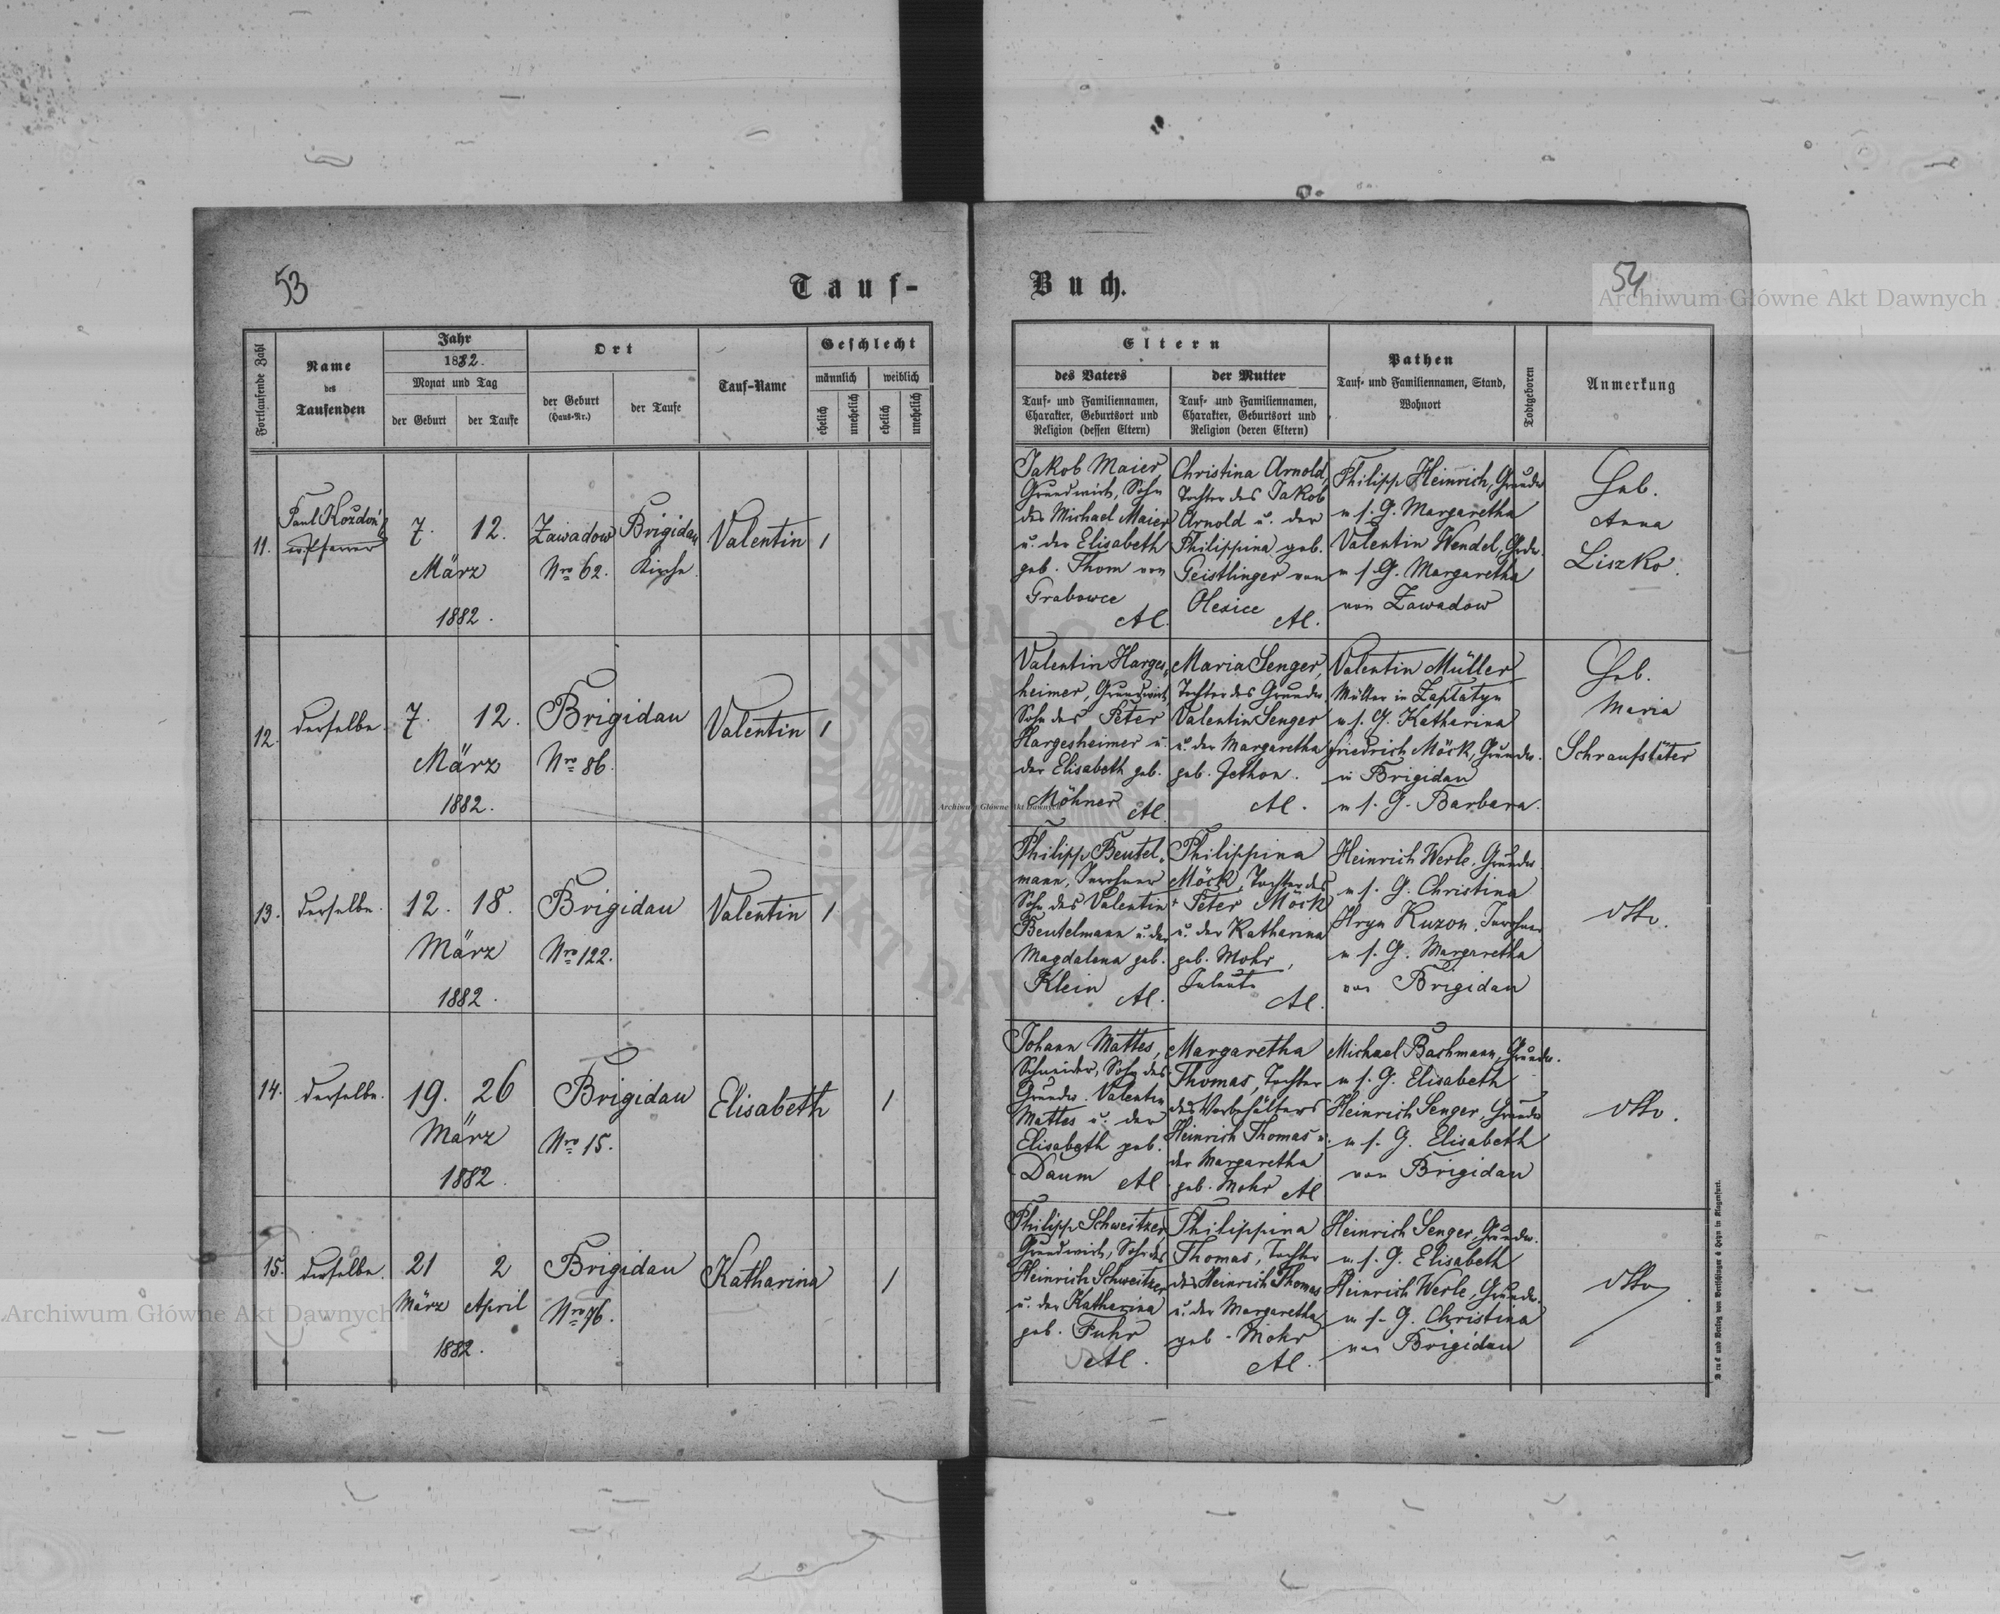 53
Tauf-
Fortlaufende Zahl
Name
des
Taufenden
Jahr
1882.
Monat und Tag
der Geburt
der Taufe
Ort
der Geburt
(Haus-Nr.)
der Taufe
Tauf-Name
Geschlecht
männlich
weiblich
ehelich
unehelich
ehelich
unehelich
11.
Paul Kozdoń
ev. Pfarrer
7. 12.
März
1882.
Zawadow
Nro 62.
Brigidau
Kirche.
Valentin
1
12.
derselbe.
7. 12.
März
1882.
Brigidau
Nro 86.
Valentin
1
13.
derselbe.
12. 18.
März
1882.
Brigidau
Nro 122.
Valentin
1
14.
derselbe.
19. 26
März
1882.
Brigidau
Nro 15.
Elisabeth
1
15.
derselbe.
21 2
März April
1882.
Brigidau
Nro 76.
Katharina
1
Buch.
54
Archiwum Główne Akt Dawnych
Eltern
des Vaters
Tauf- und Familiennamen,
Charakter, Geburtsort und
Religion (dessen Eltern)
der Mutter
Tauf- und Familiennamen,
Charakter, Geburtsort und
Religion (deren Eltern)
Pathen
Tauf- und Familiennamen, Stand,
Wohnort
Todtgeboren
Anmerkung
Jakob Maier
Grundwirth, Sohn
des Michael Maier
u. der Elisabeth
geb. Thom von
Grabowce
AC.
Christina Arnold,
Tochter des Jakob
Arnold u. der
Philippina geb.
Geistlinger von
Olexice
AC.
Philipp Heinrich, Grundw
u s. G. Margaretha
Valentin Wendel, Grdw.
u s. G. Margaretha
von Zawadow
Heb.
Anna
Liszko.
Valentin Harges-
heimer, Grundwirth
Sohn des Peter
Hargesheimer u.
der Elisabeth geb.
Möhner AC.
Maria Senger,
Tochter des Grundw.
Valentin Senger
u. der Margaretha
geb. Jethon.
AC.
Valentin Müller
Müller in Zaplatyn
u s. G. Katharina
Friedrich Möck, Grundw.
in Brigidau
u s. G. Barbara.
Heb.
Maria
Schraufstäter
Philipp Beutel-
mann, Inwohner
Sohn des Valentin
Beutelmann u. der
Magdalena geb.
Klein AC.
Philippina
Möck, Tochter des
+ Peter Möck
u. der Katharina
geb. Mohr,
AC.
Heinrich Werle, Grundw.
u s. G. Christina
Hryn Kuzon, Inwohner
u s. G. Margaretha
von Brigidau
dtto.
Johann Mattes,
Schneider, Sohn des
Grundw. Valentin
Mattes u. der
Elisabeth geb.
Daum AC
Margaretha
Thomas, Tochter
des Vorbehälters
Heinrich Thomas u.
der Margaretha
geb. Mohr AC
Michael Bachmann, Grundw.
u s. G. Elisabeth
Heinrich Senger, Grundw
u s. G. Elisabeth
von Brigidau
dtto.
Philipp Schweitzer
Grundwirth, Sohn des
Heinrich Schweitzer
u. der Katharina
geb. Fuhr
AC.
Philippina
Thomas, Tochter
des Heinrich Thomas
u. der Margaretha
geb. Mohr
AC.
Heinrich Senger, Grundw.
u s. G. Elisabeth
Heinrich Werle, Grundw.
u s. G. Christina
von Brigidau
dtto
Druck und Verlag von Bertschinger & Heyn in Klagenfurt.
Archiwum Główne Akt Dawnych
Archiwum Główne Akt Dawnych